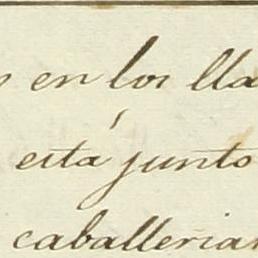 en los lla
está junto
caballerias